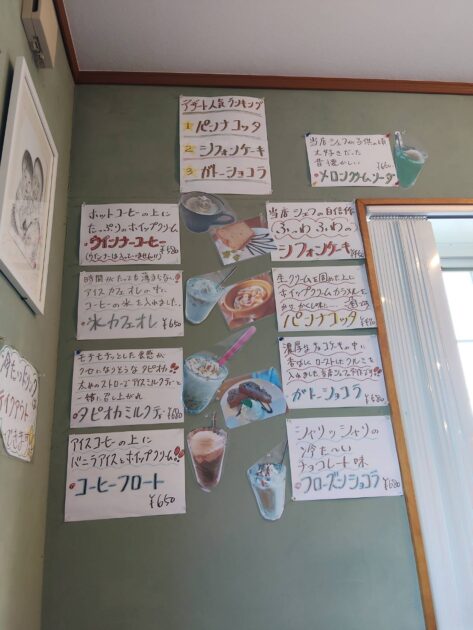 デザート人気ランキング
1 パンナコッタ
2 シフォンケーキ
3 ガトーショコラ
当店シェフが子供の頃
大好きだった
昔懐かしい
メロンクリームソーダ
ホットコーヒーの上に
たっぷりのホイップクリーム
ウインナーコーヒー
(ウインナーは入っていません!!)
当店シェフの自信作
ふ〜わふ〜わの
シフォンケーキ
時間がたっても薄まらない!!
アイスカフェオレの中に
コーヒーの氷を入れました。
氷カフェオレ ¥650
生クリームを固めた上に
ホイップクリーム
パンナコッタ
モチモチッとした食感が
クセになりそうなタピオカ
太めのストローでアイスミルクティーと
一緒に召し上がれ
タピオカミルクティー ¥680
濃厚なチョコケーキの中に
香ばしくローストしたクルミを
ガトーショコラ
アイスコーヒーの上に
バニラアイスとホイップクリーム
コーヒーフロート
¥650
シャリッシャリの
冷た〜い
チョコレート味
フローズンショコラ
¥680
テイクアウト
できます